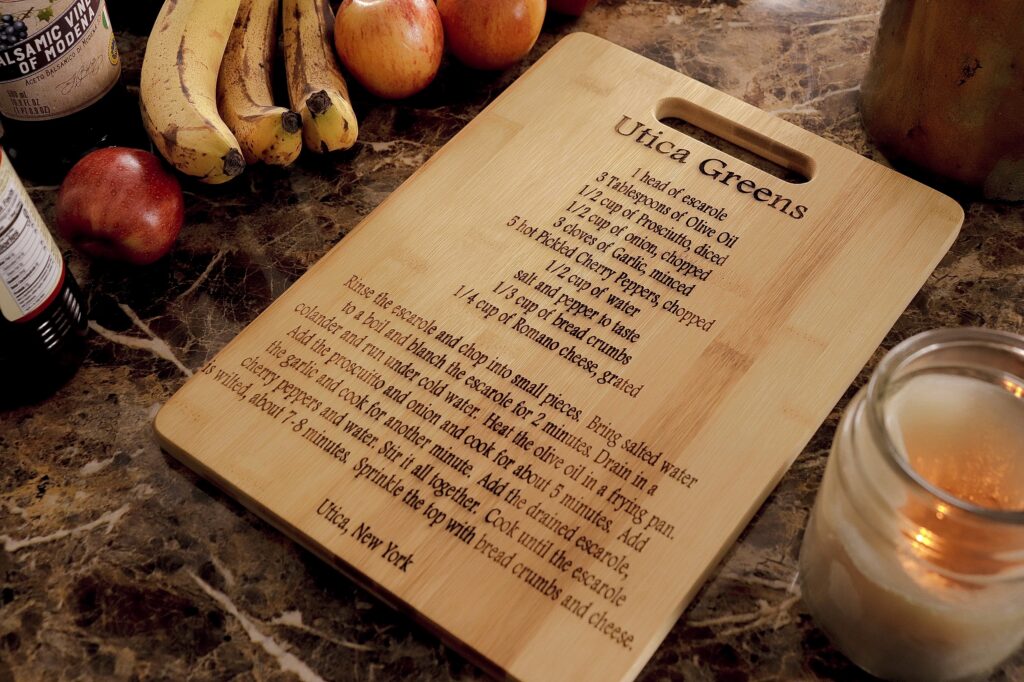 BALSAMIC VINE
OF MODENA
ACETO BALSAMICO DI MODENA
500 mL
Utica Greens
1 head of escarole
3 Tablespoons of Olive Oil
1/2 cup of Prosciutto, diced
1/2 cup of onion, chopped
3 cloves of Garlic, minced
5 hot Pickled Cherry Peppers, chopped
1/2 cup of water
salt and pepper to taste
1/3 cup of bread crumbs
1/4 cup of Romano cheese, grated
Rinse the escarole and chop into small pieces. Bring salted water
to a boil and blanch the escarole for 2 minutes. Drain in a
colander and run under cold water. Heat the olive oil in a frying pan.
Add the prosciutto and onion and cook for about 5 minutes. Add
the garlic and cook for another minute. Add the drained escarole,
cherry peppers and water. Stir it all together. Cook until the escarole
is wilted, about 7-8 minutes. Sprinkle the top with bread crumbs and cheese.
Utica, New York